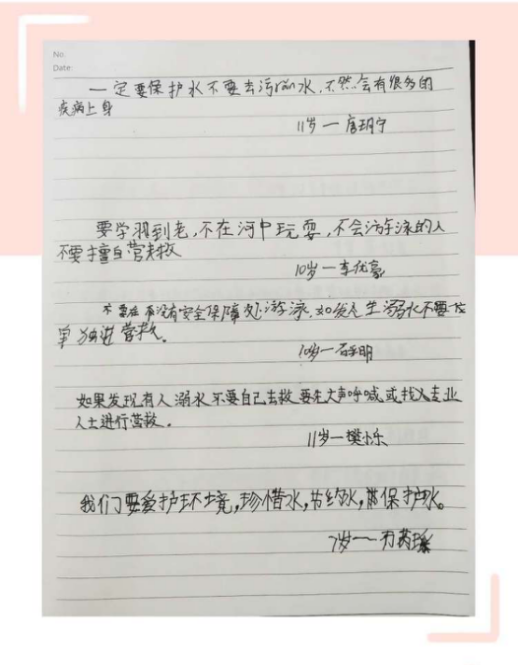 No.
Date:
一定要保护水不要去污rǎn水,不然会有很多的
疾病上身
11岁一唐玥宁
要学习到老,不在河中玩耍,不会游泳的人
不要擅自营救
10岁一李优豪
不要在 没有安全保障处游泳,如发 生溺水不要
单独进营救。
10岁一石 明
如果发现有人溺水不要自己去救要在大声呼喊或找 专业
人士进行营救。
11岁一樊小乐
我们要爱护环境,珍惜水,节约水, 保护水。
7岁一